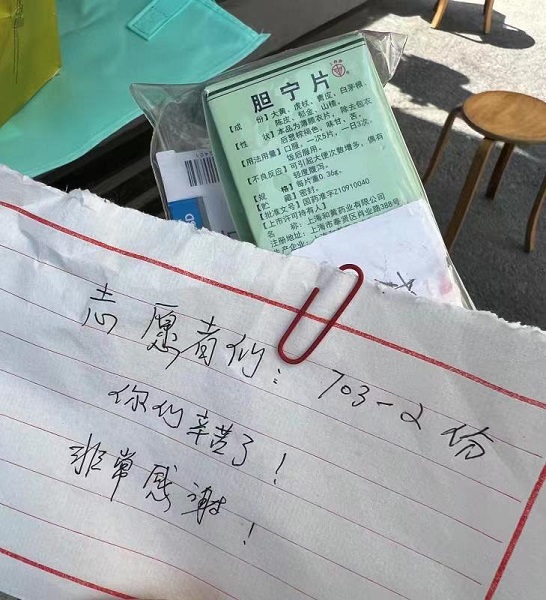 胆宁片
【成 份】大黄、虎杖、青皮、白茅根、
陈皮、郁金、山楂。
【性 状】本品为薄膜衣片，除去包衣
后显棕褐色，味甘、苦。
【用法用量】口服，一次5片，一日3次，
饭后服用。
【不良反应】可引起大便次数增多，偶有
轻度腹泻。
【规 格】每片重0.36g。
【贮 藏】密封。
【批准文号】国药准字Z10910040
【上市许可持有人】
名 称：上海和黄药业有限公司
注册地址：上海市奉贤区肖业路388号
志愿者们：703-2份
你们辛苦了！
非常感谢！